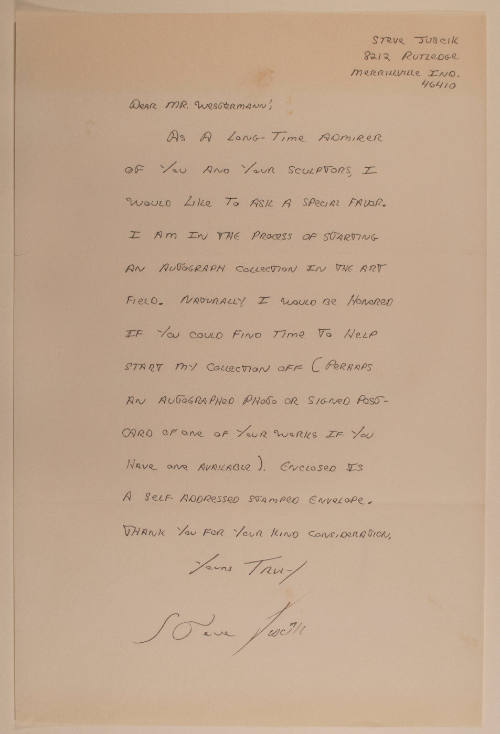 STEVE JURCIK
8212 RUTLEDGE
MERRILLVILLE IND.
46410
DEAR MR. WESTERMANN;
AS A LONG-TIME ADMIRER
OF YOU AND YOUR SCULPTORS, I
WOULD LIKE TO ASK A SPECIAL FAVOR.
I AM IN THE PROCESS OF STARTING
AN AUTOGRAPH COLLECTION IN THE ART
FIELD. NATURALLY I WOULD BE HONORED
IF YOU COULD FIND TIME TO HELP
START MY COLLECTION OFF (PERHAPS
AN AUTOGRAPHED PHOTO OR SIGNED POST-
CARD OF ONE OF YOUR WORKS IF YOU
HAVE ONE AVAILABLE). ENCLOSED IS
A SELF ADDRESSED STAMPED ENVELOPE.
THANK YOU FOR YOUR KIND CONSIDERATION.
YOURS TRULY
Steve Jurcik